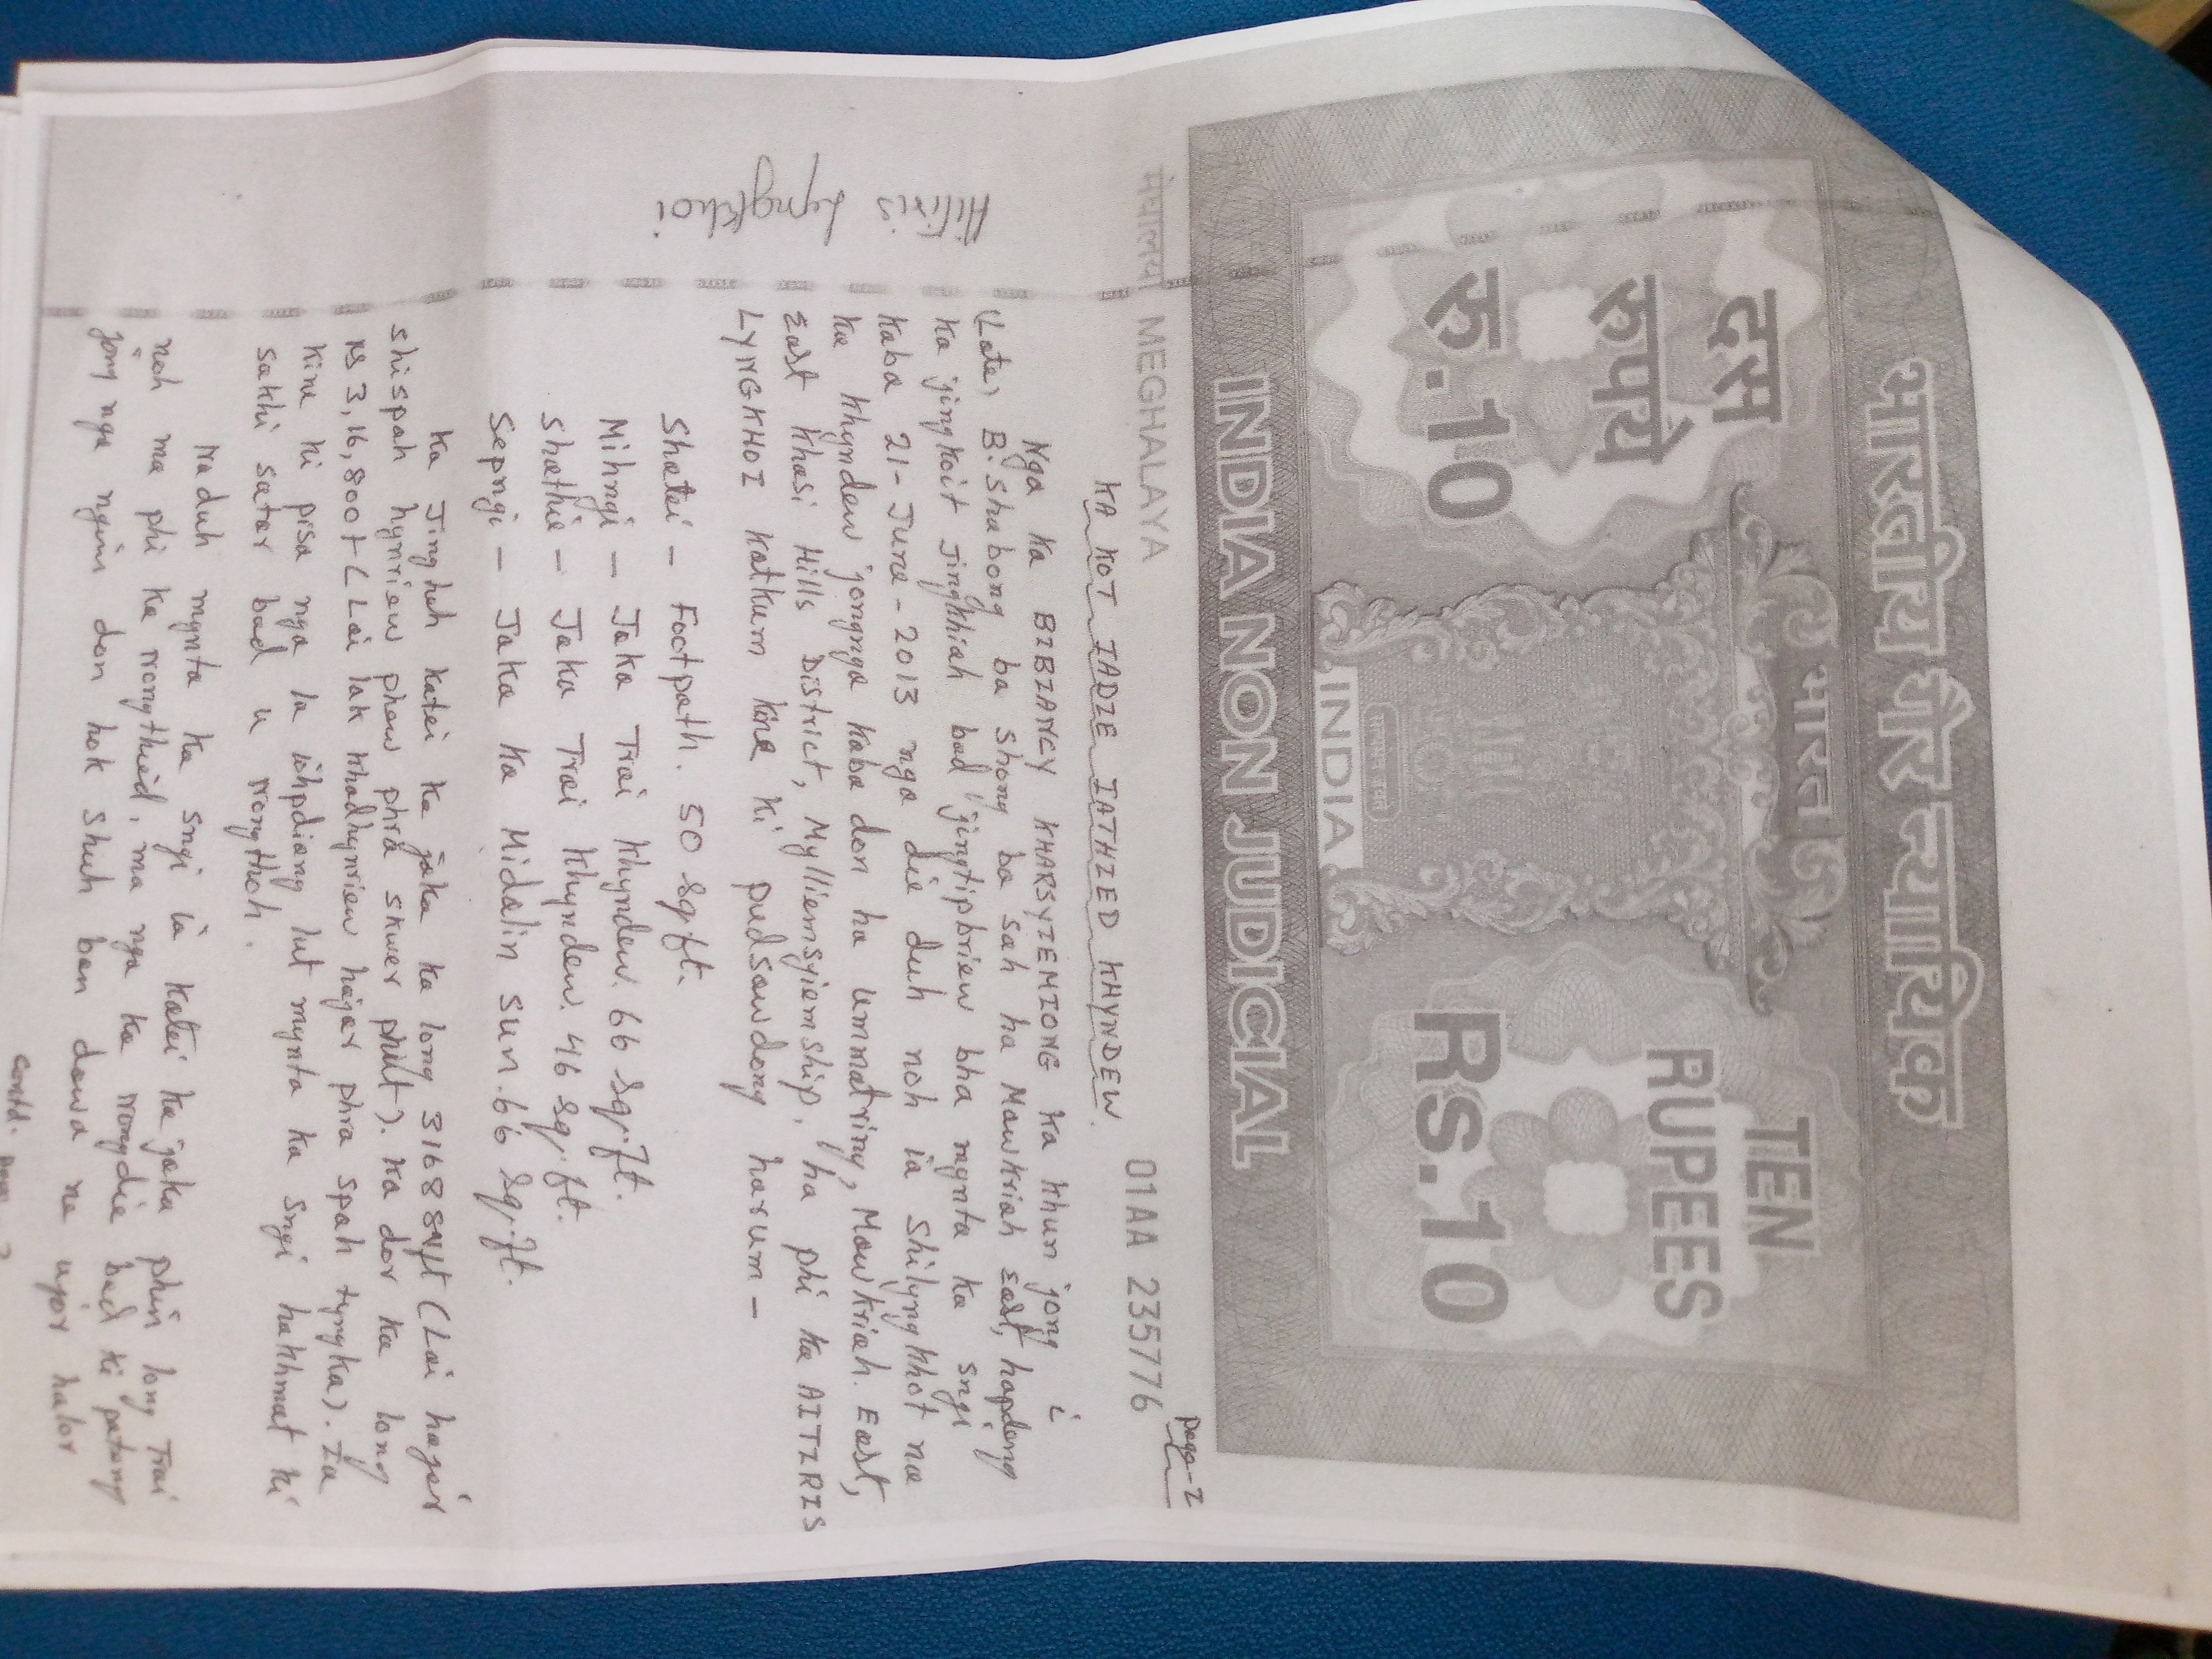 भारतीय गैर न्यायिक
दस
रुपये
रु.10
भारत
सत्यमेव जयते
INDIA
TEN
RUPEES
Rs.10
INDIA NON JUDICIAL
page-I
मेघालय MEGHALAYA
01AA 235776
KA KOT IADIE IATHIED KHYNDEW.
Nga ka BIBIANCY KHARSYIEMIONG ka khun jong i
(Late) B. Shabong ba shong ba sah ha Mawkriah East, hapdeng
ka jingkoit jingkhiah bad jingtipbriew bha mynta ka sngi
kaba 21-June-2013 nga die duh noh ia shilyngkhot na
ka khyndew jongnga kaba don ha Ummatriny, Mawkriah East,
East Khasi Hills District, Mylliemsyiemship, ha phi ka AITIRIS
LYNGKHOI katkum kine ki pudsawdong harum -
Shatei - Footpath. 50 Sq.ft.
Mihngi - Jaka Trai Khyndew. 66 Sq.ft.
Shathie - Jaka Trai Khyndew. 46 Sq.ft.
Sepngi - Jaka Ka Midalin Sun. 66 Sq.ft.
Ka Jingheh katei ka jaka ka long 3168 sqft (Lai hajar
shispah hynriew phew phra skwer phut). Ka dor ka long
Rs 3,16,800/- (Lai lak khadhynriew hajar phra spah tyngka). Ia
kine ki pisa nga la iohpdiang lut mynta ka sngi hakhmat ki
sakhi satar bad u rongthoh.
Naduh mynta ka sngi ia katei ka jaka phin long Trai
noh ma phi ka nongthied, ma nga ka nongdie bad ki pateng
jong nga ngin don hok shuh ban dawa ne ujor halor
Contd.
Lyngkhoi